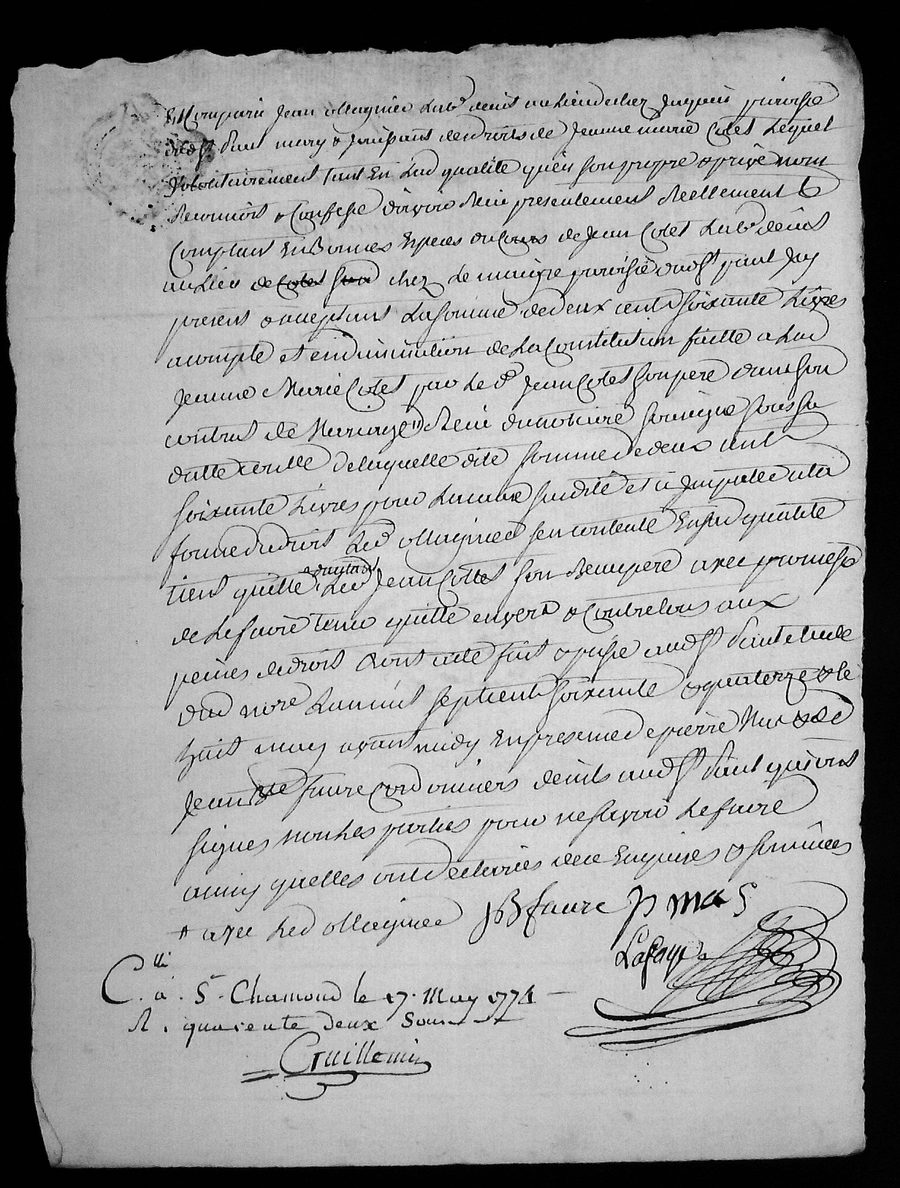 Est Comparu Jean Magnien Lab.r demt au Lieu de chez Jaquein paroisse
dud. st paul mary & Jouissant des droits de Jeanne marie Colet Lequel
Volontairement tant En Lad qualité quen son propre & privé nom
Reconnoit & Confesse davoir Recu presentement Reellement &
Comptant En Bonnes Espèces au Cours de Jean Colet Lab.r demt
au Lieu de chez Le maigre paroisse dud. st paul Jay
present & acceptant La somme de deux cent soixante Livres
acompte et en diminution de La Constitution faitte a Lad
Jeanne Marie Colet par Le d. Jean Colet son pere dans son
contrat de Mariage Recu du notaire soussigné sous sa
datte de laquelle dite somme de deux cent
soixante Livres pour La cause susdite et a Imputer a la
forme du droit Led Magnien sen contente En sad qualité
tient quitte Led Jean Colet son Beaupere avec promesse
de Le faire tenir quitte envers & Contre tous aux
peines de droit dont acte fait & passé aud. st paul etude
dud nore Lan mil sept cent soixante & quatorze & le
huit may avant midy En presence de pierre Mas & de
Jean Bte faure cordonniers demts aud. st paul qui ont
signés non Les parties pour ne scavoir Le faire
ainsy quelles ont declarées de ce Enquises & sommées
+ avec Led Magnien JB faure P mas
Lafaye
C.llé à St Chamond le 17 May 1774
R. quarente deux Sous
Guillemin